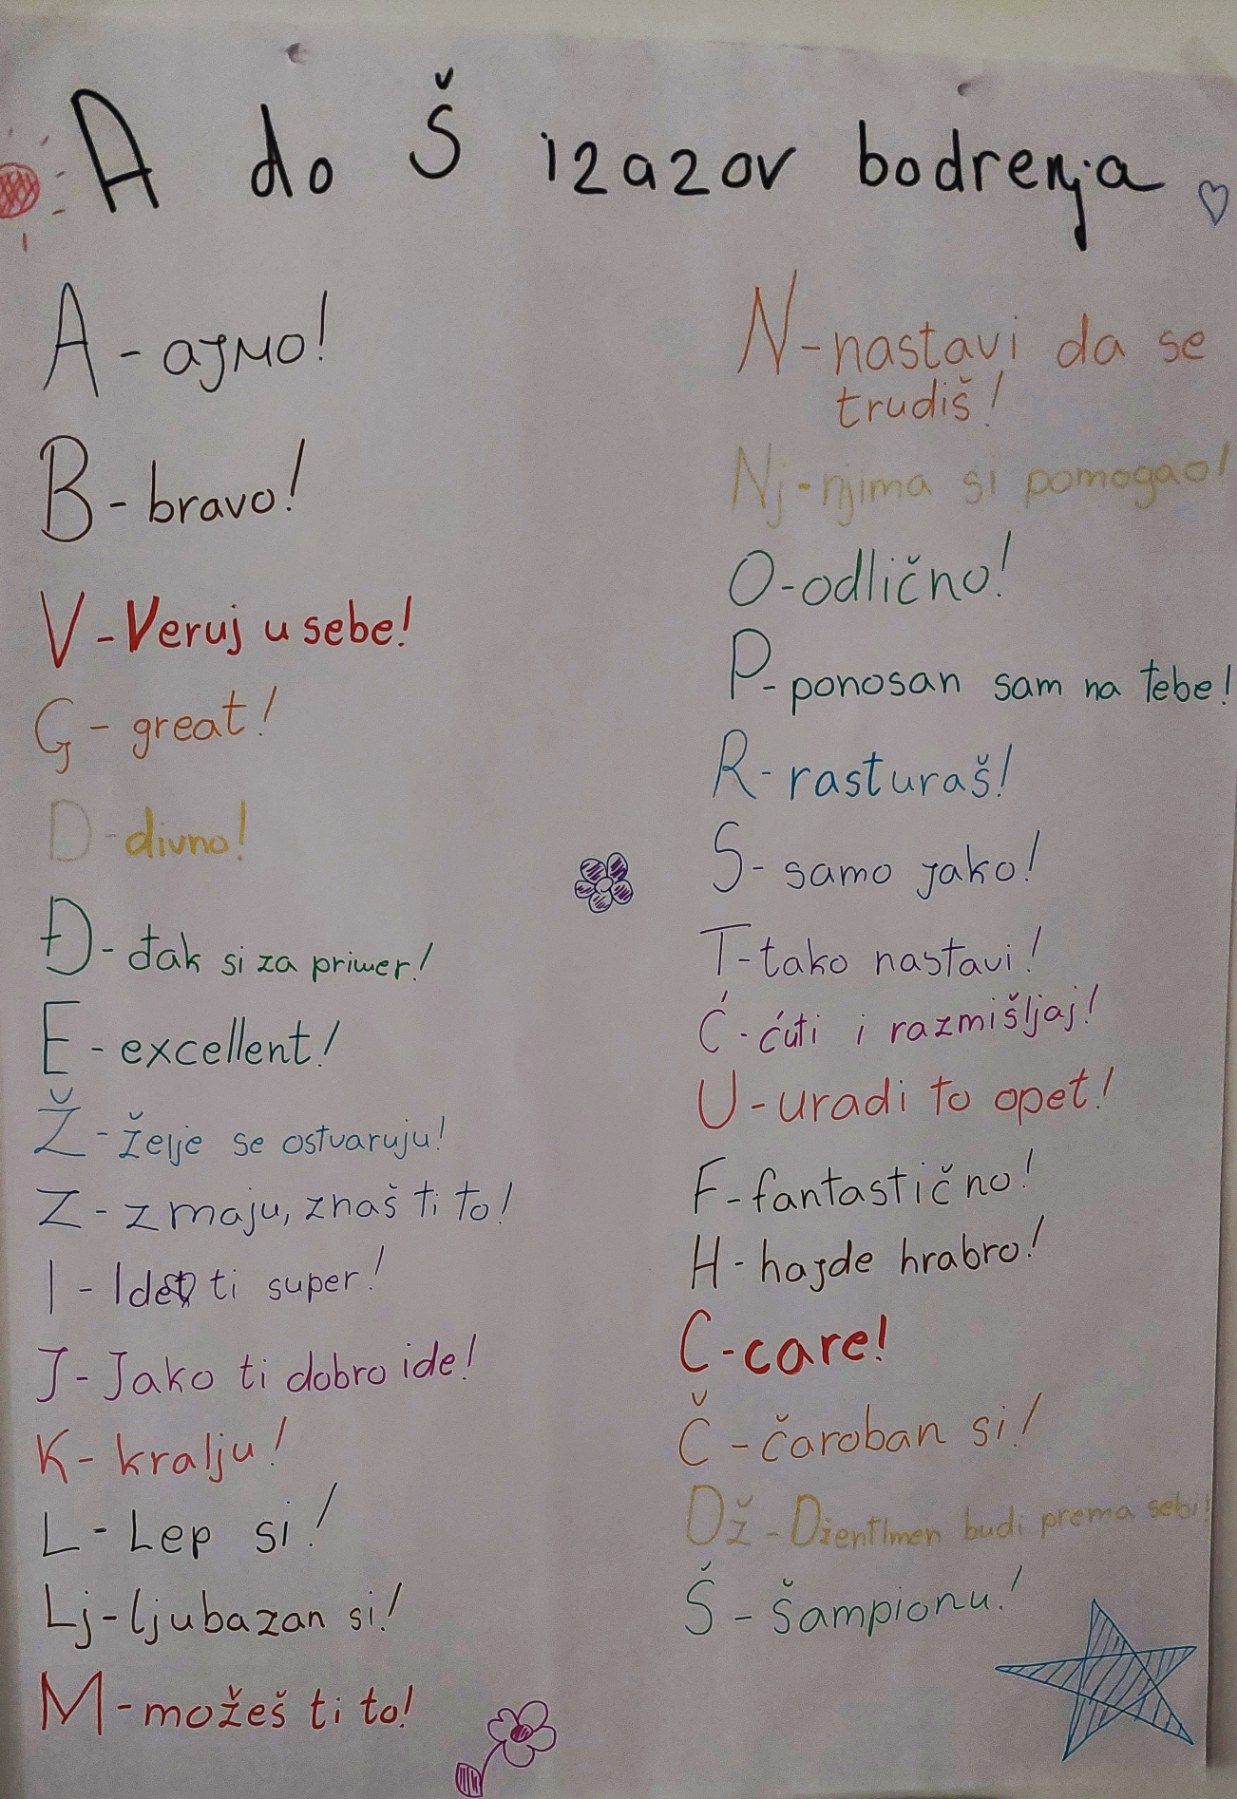 A do Š izazov bodrenja
A - ajmo!
B - bravo!
V - Veruj u sebe!
G - great!
D - divno!
Đ - đak si za primer!
E - excellent!
Ž - želje se ostvaruju!
Z - zmaju, znaš ti to!
I - Ide ti super!
J - Jako ti dobro ide!
K - kralju!
L - Lep si!
Lj - ljubazan si!
M - možeš ti to!
N - nastavi da se
trudiš!
Nj - njima si pomogao!
O - odlično!
P - ponosan sam na tebe!
R - rasturaš!
S - samo jako!
T - tako nastavi!
Ć - ćuti i razmišljaj!
U - uradi to opet!
F - fantastično!
H - hajde hrabro!
C - care!
Č - čaroban si!
Dž - Džentlmen budi prema sebi!
Š - šampionu!